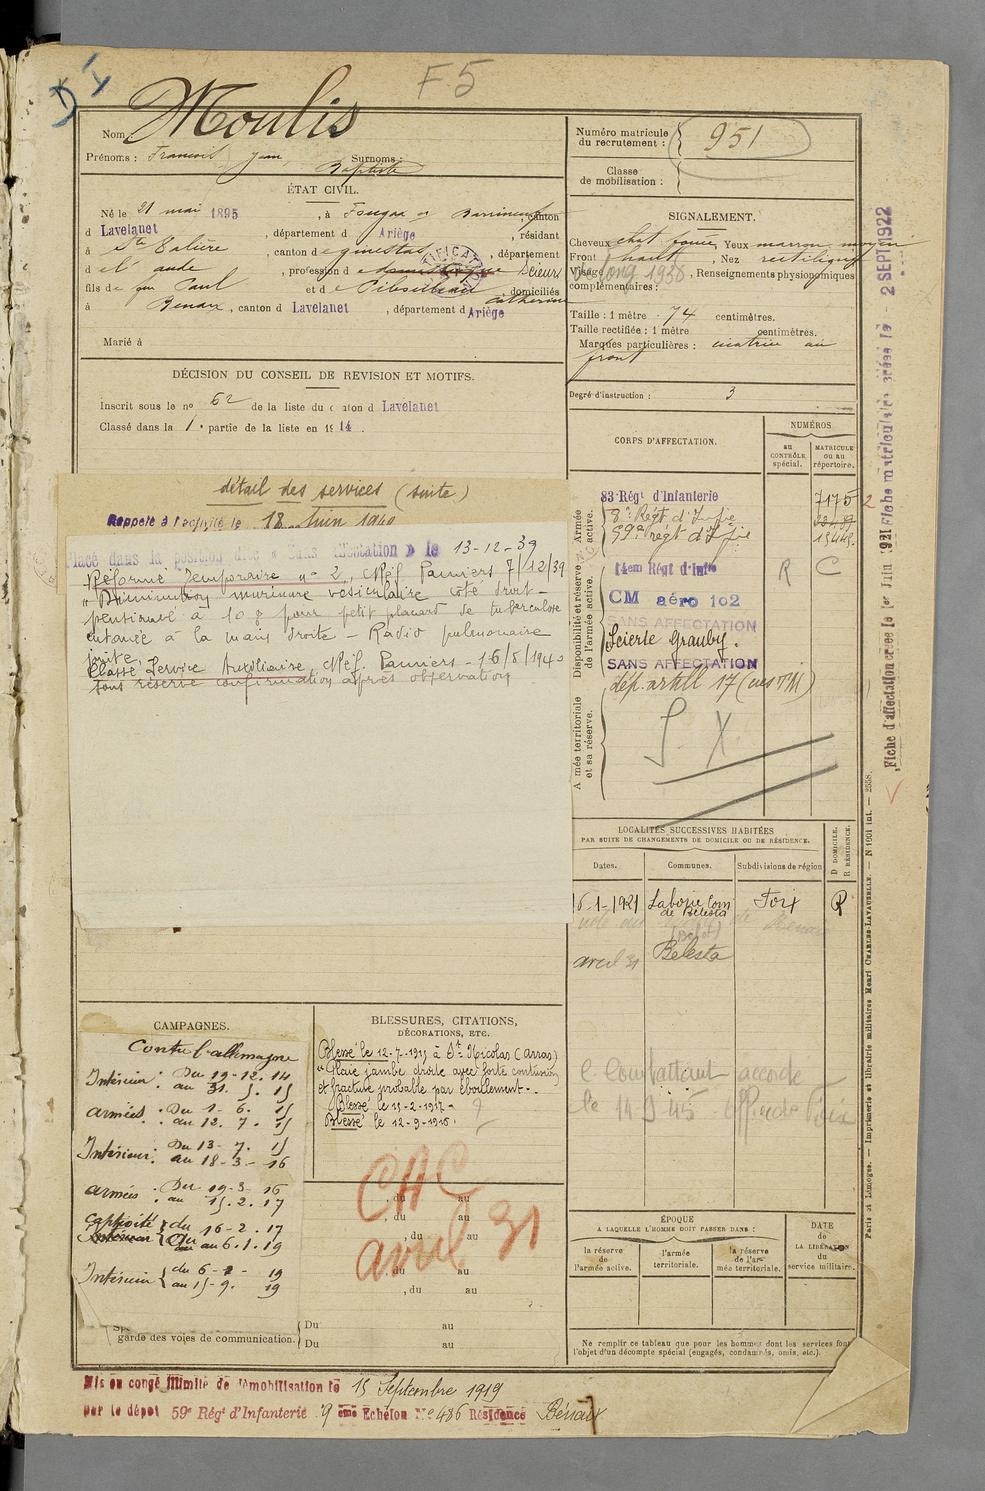 F5
Nom : Moulis
Prénoms : Francois Jean Surnoms :
Baptiste
ÉTAT CIVIL.
Né le 21 mai 1895, à Fougax et Barrineuf, canton
d Lavelanet, département d Ariège, résidant
à Ste Colombe, canton de quillan, département
d el aude, profession de Scieur
fils de feu Paul et de Catherine, domiciliés
à Benaix, canton d Lavelanet, département d Ariège
Marié à
DÉCISION DU CONSEIL DE REVISION ET MOTIFS.
Inscrit sous le no 62 de la liste du canton d Lavelanet
Classé dans la 1e partie de la liste en 1914.
détail des services (suite)
Rappelé à l'activité le 18 Juin 1940
Placé dans la position dite « Sans affectation » le 13-12-39
Réforme Temporaire no 2, Réf. Pamiers 7/12/39
"Diminution murmure vésiculaire côté droit -
pentionné à 10 % pour petit placard de tuberculose
cutanée à la main droite - Radio pulmonaire
jointe.
Classé Service Auxiliaire, Réf. Pamiers - 16/5/1940
sous réserve confirmation après observation
CAMPAGNES.
Contre l'allemagne
Intérieur : Du 19-12-14
au 31. 5. 15
armées : Du 1- 6. 15
au 12. 7. 15
Intérieur : Du 13- 7. 15
au 18-3- -16
armées : Du 19-3- 16
au 15.2. 17
captivité du 16-2. 17
au 6.1.19
Intérieur du 6-1- 19
au 15-9. 19
garde des voies de communication.
Du au
Du au
BLESSURES, CITATIONS,
DÉCORATIONS, ETC.
Blessé le 12-7-1915 à St Nicolas (Arras)
"Plaie jambe droite avec forte contusion
et fracture probable par éboulement -
Blessé le 15-2-1917 -
Blessé le 12-9-1916.
, du au
, du au
, du au
, du au
, du au
CAC
avril 31
Mis en congé illimité de démobilisation le 15 Septembre 1919
par le dépôt 59e Régt d'Infanterie 9 ème Echelon No 486 Résidence Bénaix
Numéro matricule
du recrutement : 951
Classe
de mobilisation :
SIGNALEMENT.
Cheveux chat foncé, Yeux marron moyen
Front haut, Nez rectiligne
Visage long, Renseignements physiognomiques
complémentaires :
Taille : 1 mètre 74 centimètres.
Taille rectifiée : 1 mètre centimètres.
Marques particulières : cicatrice au
front
Degré d'instruction : 3
CORPS D'AFFECTATION.
NUMÉROS
au
CONTRÔLE
spécial.
MATRICULE
ou au
répertoire.
Armée
active.
83e Régt d'Infanterie 7175
8e Régt d'Infie
59e régt d'Infie 15448.
Disponibilité et réserve
de l'armée active.
14em Régt d'Infie R C
CM aéro 102
SANS AFFECTATION
Scierie Grauby.
SANS AFFECTATION
Armée territoriale
et sa réserve.
dép. artill 17 (ues TM)
S. X
LOCALITÉS SUCCESSIVES HABITÉES
PAR SUITE DE CHANGEMENTS DE DOMICILE OU DE RÉSIDENCE.
Dates. Communes. Subdivisions de région
D DOMICILE.
R RÉSIDENCE.
16-1-1921 Laborie Com Foix R
de Bélesta
avril 31 Bélesta
C. Combattant accordé
le 14 9 45
ÉPOQUE
A LAQUELLE L'HOMME DOIT PASSER DANS :
la réserve
de
l'armée active.
l'armée
territoriale.
la réserve
de l'ar-
mée territoriale.
DATE
de
LA LIBÉRATION
du
service militaire.
Ne remplir ce tableau que pour les hommes dont les services font
l'objet d'un décompte spécial (engagés, condamnés, omis, etc.).
Fiche d'affectation créée le 1er Juin 1921 Fiche matriculaire créée le - 2 SEPT 1922
Paris et Limoges. — Imprimerie et librairie militaires Henri CHARLES-LAVAUZELLE. — N 1001 int. — 2558.